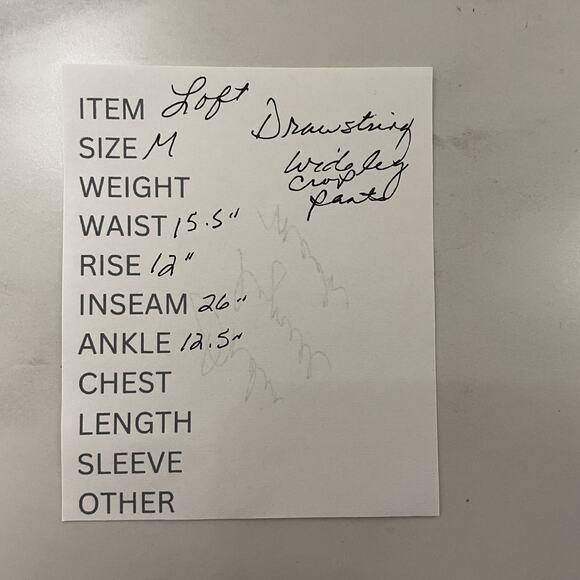 ITEM Loft
Drawstring
SIZE M
wide leg
crop
pants
WEIGHT
WAIST 15.5"
RISE 12"
INSEAM 26"
ANKLE 12.5"
CHEST
LENGTH
SLEEVE
OTHER